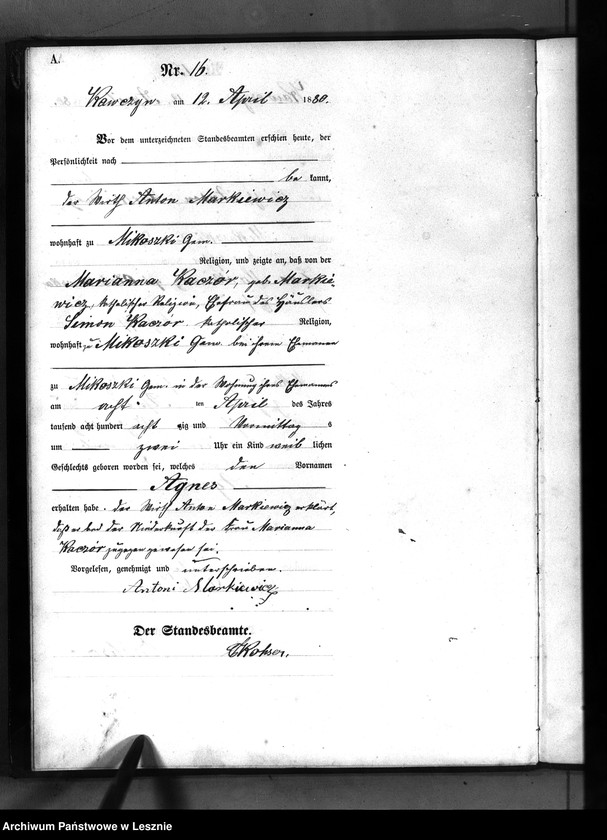 A.
Nr. 16.
Kawczyn am 12. April 1880.
Vor dem unterzeichneten Standesbeamten erschien heute, der
Persönlichkeit nach
be kannt,
der Wirth Anton Markiewicz
wohnhaft zu Mikoszki Gem.
Religion, und zeigte an, daß von der
Marianna Kaczór, geb. Markie-
wicz, katholischer Religion, Ehefrau des Häuslers
Simon Kaczór katholischer Religion,
wohnhaft zu Mikoszki Gem. bei ihrem Ehemanne
zu Mikoszki Gem. in der Wohnung ihres Ehemannes
am acht ten April des Jahres
tausend acht hundert acht zig und Vormittag s
um zwei Uhr ein Kind weib lichen
Geschlechts geboren worden sei, welches den Vornamen
Agnes
erhalten habe. Der Wirth Anton Markiewicz erklärt,
daß er bei der Niederkunft der Frau Marianna
Kaczór zugegen gewesen sei.
Vorgelesen, genehmigt und unterschrieben.
Antoni Markiewicz
Der Standesbeamte.
Archiwum Państwowe w Lesznie